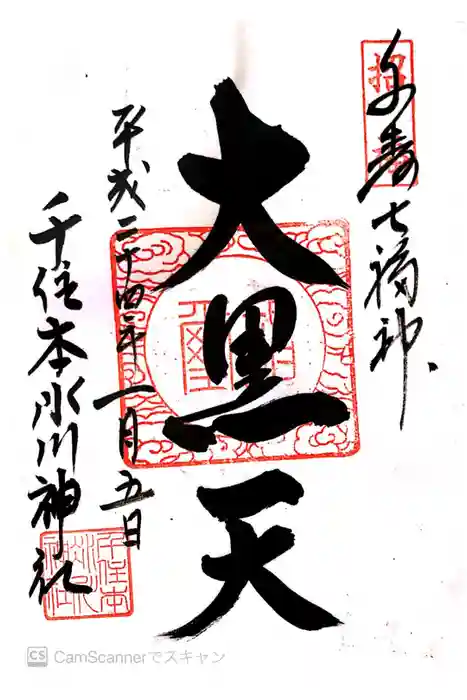 千寿七福神
大黒天
平成二十四年一月五日
千住本氷川神社
CS CamScannerでスキャン